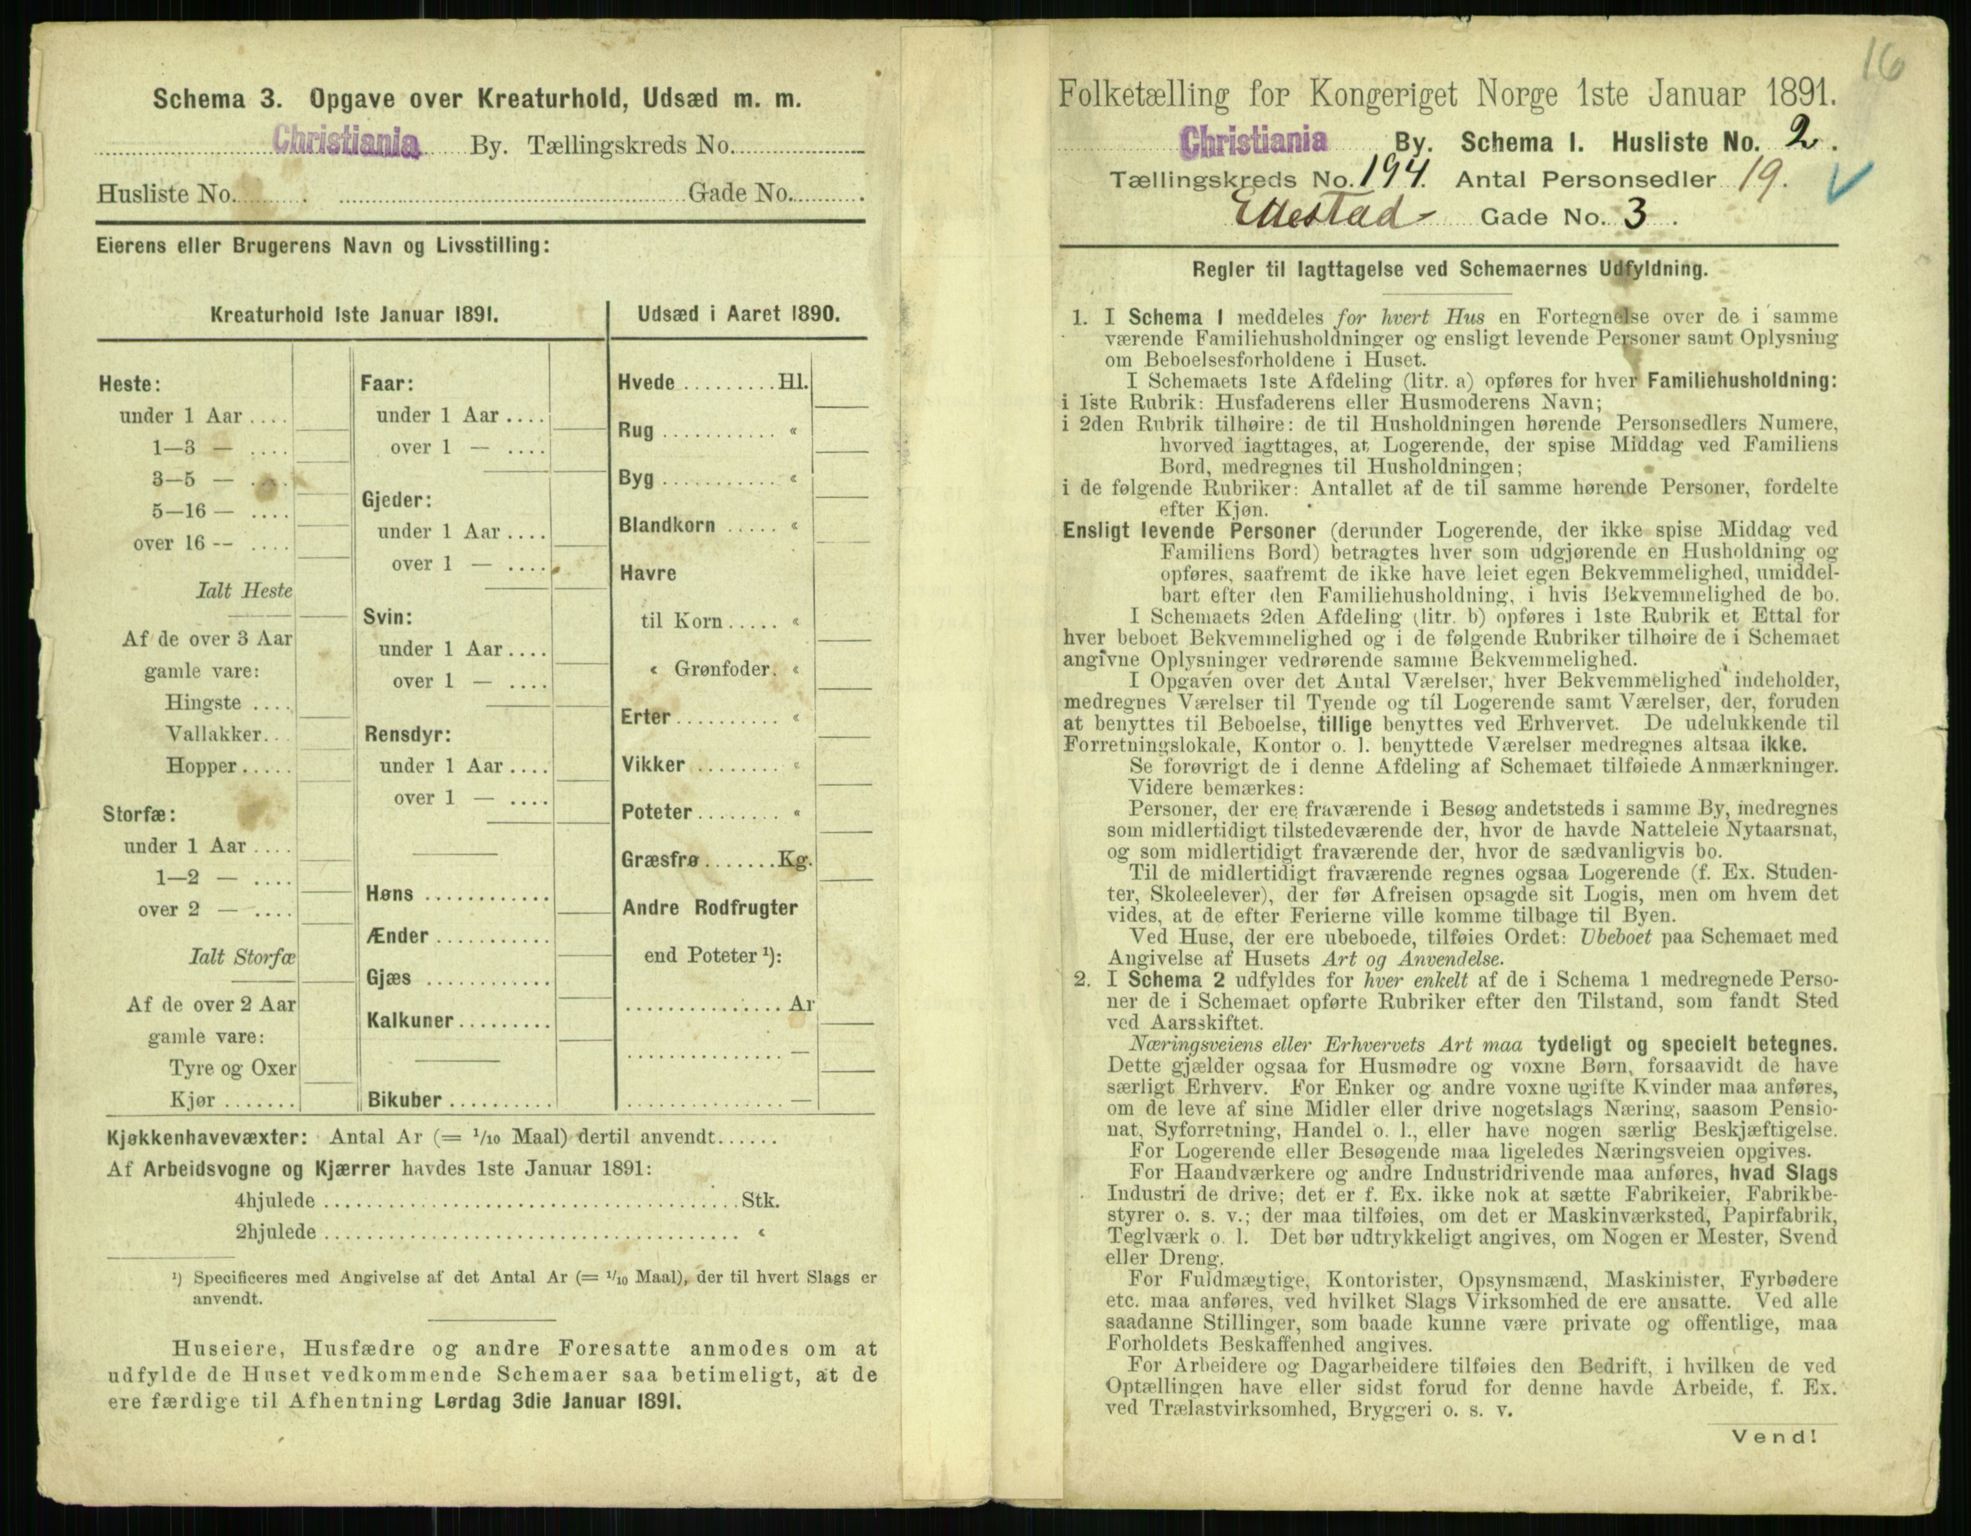 Schema 3. Opgave over Kreaturhold, Udsæd m. m.
Christiania By. Tællingskreds No.
Husliste No. Gade No.
Eierens eller Brugerens Navn og Livsstilling:
Kreaturhold 1ste Januar 1891.
Heste:
under 1 Aar ....
1—3 — ....
3—5 — ....
5—16 — ....
over 16 -- ....
Ialt Heste
Af de over 3 Aar
gamle vare:
Hingste ....
Vallakker...
Hopper.....
Storfæ:
under 1 Aar ....
1—2 — ....
over 2 — ....
Ialt Storfæ
Af de over 2 Aar
gamle vare:
Tyre og Oxer
Kjør .......
Faar:
under 1 Aar ....
over 1 — ....
Gjeder:
under 1 Aar ....
over 1 — ....
Svin:
under 1 Aar ....
over 1 — ....
Rensdyr:
under 1 Aar ....
over 1 — ....
Høns ............
Ænder ...........
Gjæs ............
Kalkuner.........
Bikuber ..........
Udsæd i Aaret 1890.
Hvede .........Hl.
Rug ........... «
Byg ........... «
Blandkorn ..... «
Havre
til Korn ..... «
« Grønfoder. «
Erter.......... «
Vikker ........ «
Poteter ........ «
Græsfrø .......Kg.
Andre Rodfrugter
end Poteter ¹):
............... Ar
............... —
............... —
Kjøkkenhavevæxter: Antal Ar (= 1/10 Maal) dertil anvendt......
Af Arbeidsvogne og Kjærrer havdes 1ste Januar 1891:
4hjulede ....................................... Stk.
2hjulede ....................................... «
¹) Specificeres med Angivelse af det Antal Ar (= 1/10 Maal), der til hvert Slags er
anvendt.
Huseiere, Husfædre og andre Foresatte anmodes om at
udfylde de Huset vedkommende Schemaer saa betimeligt, at de
ere færdige til Afhentning Lørdag 3die Januar 1891.
16
Folketælling for Kongeriget Norge 1ste Januar 1891.
Christiania By. Schema 1. Husliste No. 2.
Tællingskreds No. 194. Antal Personsedler 19.
Ellestad Gade No. 3.
Regler til Iagttagelse ved Schemaernes Udfyldning.
1. I Schema 1 meddeles for hvert Hus en Fortegnelse over de i samme
værende Familiehusholdninger og ensligt levende Personer samt Oplysning
om Beboelsesforholdene i Huset.
I Schemaets 1ste Afdeling (litr. a) opføres for hver Familiehusholdning:
i 1ste Rubrik: Husfaderens eller Husmoderens Navn;
i 2den Rubrik tilhøire: de til Husholdningen hørende Personsedlers Numere,
hvorved iagttages, at Logerende, der spise Middag ved Familiens
Bord, medregnes til Husholdningen;
i de følgende Rubriker: Antallet af de til samme hørende Personer, fordelte
efter Kjøn.
Ensligt levende Personer (derunder Logerende, der ikke spise Middag ved
Familiens Bord) betragtes hver som udgjørende en Husholdning og
opføres, saafremt de ikke have leiet egen Bekvemmelighed, umiddel-
bart efter den Familiehusholdning, i hvis Bekvemmelighed de bo.
I Schemaets 2den Afdeling (litr. b) opføres i 1ste Rubrik et Ettal for
hver beboet Bekvemmelighed og i de følgende Rubriker tilhøire de i Schemaet
angivne Oplysninger vedrørende samme Bekvemmelighed.
I Opgaven over det Antal Værelser, hver Bekvemmelighed indeholder,
medregnes Værelser til Tyende og til Logerende samt Værelser, der, foruden
at benyttes til Beboelse, tillige benyttes ved Erhvervet. De udelukkende til
Forretningslokale, Kontor o. l. benyttede Værelser medregnes altsaa ikke.
Se forøvrigt de i denne Afdeling af Schemaet tilføiede Anmærkninger.
Videre bemærkes:
Personer, der ere fraværende i Besøg andetsteds i samme By, medregnes
som midlertidigt tilstedeværende der, hvor de havde Natteleie Nytaarsnat,
og som midlertidigt fraværende der, hvor de sædvanligvis bo.
Til de midlertidigt fraværende regnes ogsaa Logerende (f. Ex. Studen-
ter, Skoleelever), der før Afreisen opsagde sit Logis, men om hvem det
vides, at de efter Ferierne ville komme tilbage til Byen.
Ved Huse, der ere ubeboede, tilføies Ordet: Ubeboet paa Schemaet med
Angivelse af Husets Art og Anvendelse.
2. I Schema 2 udfyldes for hver enkelt af de i Schema 1 medregnede Perso-
ner de i Schemaet opførte Rubriker efter den Tilstand, som fandt Sted
ved Aarsskiftet.
Næringsveiens eller Erhvervets Art maa tydeligt og specielt betegnes.
Dette gjælder ogsaa for Husmødre og voxne Børn, forsaavidt de have
særligt Erhverv. For Enker og andre voxne ugifte Kvinder maa anføres,
om de leve af sine Midler eller drive nogetslags Næring, saasom Pensio-
nat, Syforretning, Handel o. l., eller have nogen særlig Beskjæftigelse.
For Logerende eller Besøgende maa ligeledes Næringsveien opgives.
For Haandværkere og andre Industridrivende maa anføres, hvad Slags
Industri de drive; det er f. Ex. ikke nok at sætte Fabrikeier, Fabrikbe-
styrer o. s. v.; der maa tilføies, om det er Maskinværksted, Papirfabrik,
Teglværk o. l. Det bør udtrykkeligt angives, om Nogen er Mester, Svend
eller Dreng.
For Fuldmægtige, Kontorister, Opsynsmænd, Maskinister, Fyrbødere
etc. maa anføres, ved hvilket Slags Virksomhed de ere ansatte. Ved alle
saadanne Stillinger, som baade kunne være private og offentlige, maa
Forholdets Beskaffenhed angives.
For Arbeidere og Dagarbeidere tilføies den Bedrift, i hvilken de ved
Optællingen have eller sidst forud for denne havde Arbeide, f. Ex.
ved Trælastvirksomhed, Bryggeri o. s. v.
Vend!